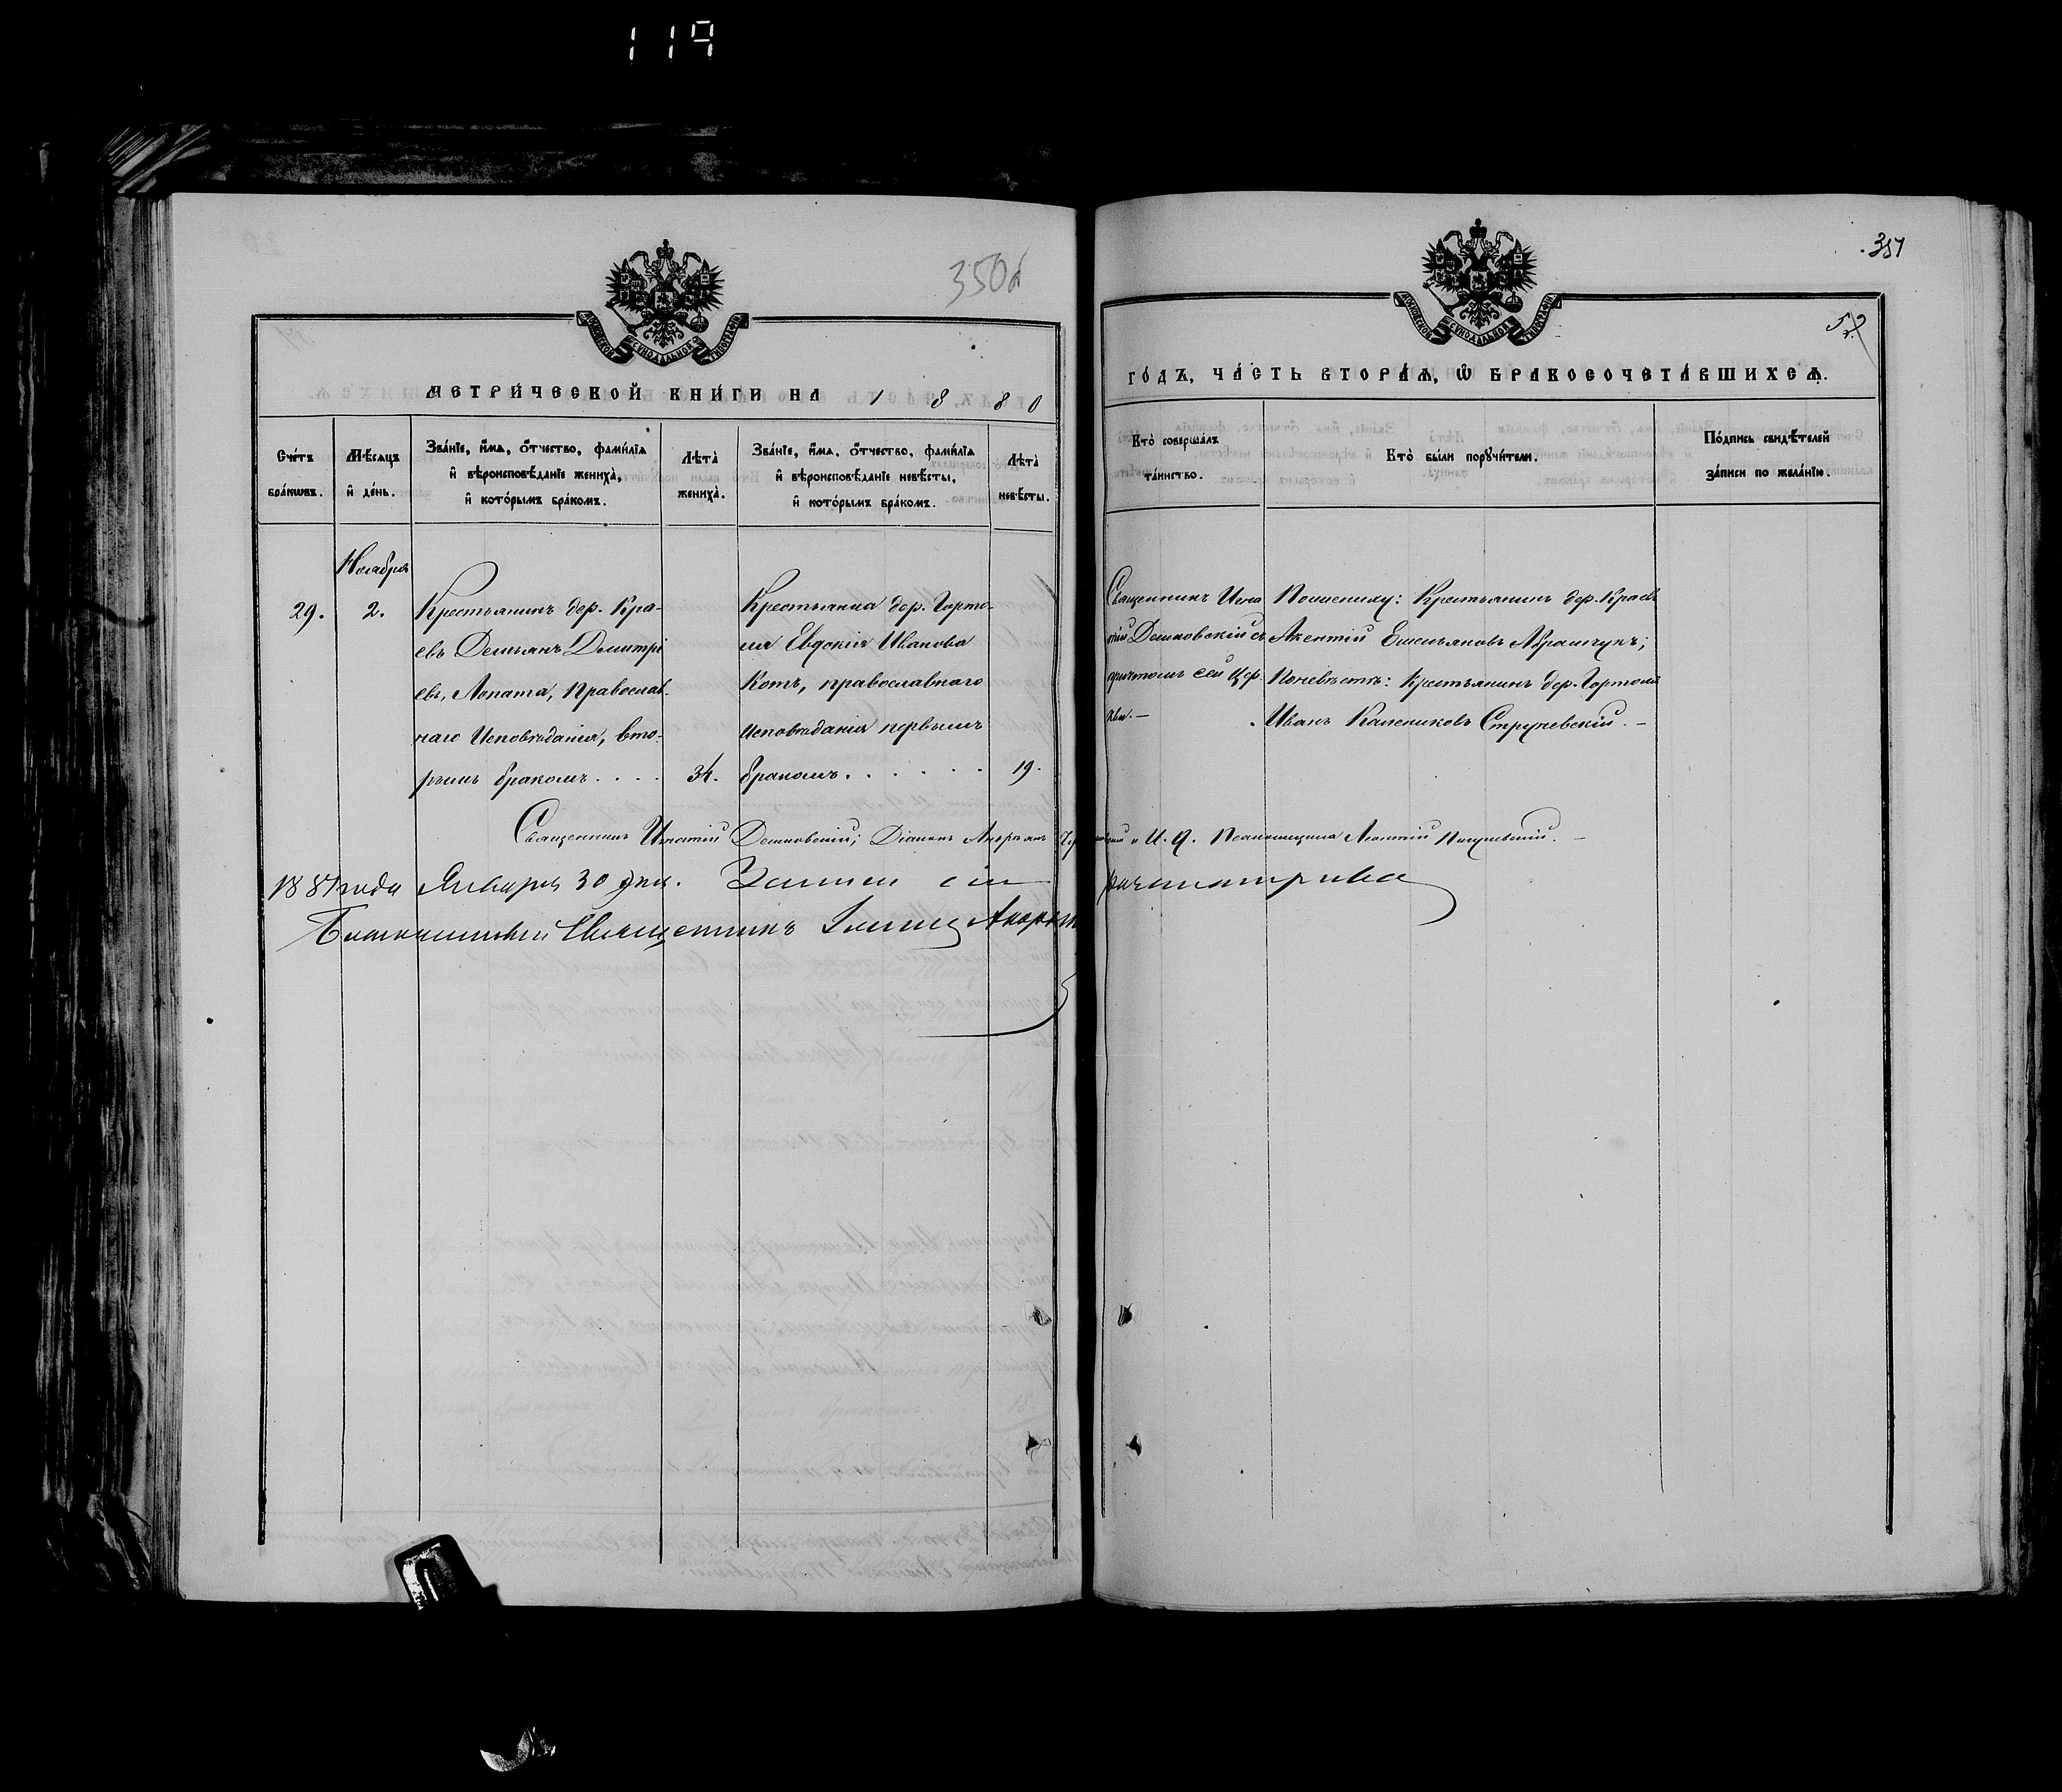 119
350б
351
52
МОСКОВСКОЙ СѴНОДАЛЬНОЙ ТИПОГРАФІИ
МОСКОВСКОЙ СѴНОДАЛЬНОЙ ТИПОГРАФІИ
МЕТРИ́ЧЕСКОЙ КНИ́ГИ НА 1880
ГО́ДЪ, ЧА́СТЬ ВТОРА́Ѧ, Ѽ БРАКОСОЧЕТА́ВШИХСѦ.
Сче́тъ бра́кѡвъ.
Мѣ́сѧцъ и҆ де́нь.
Зва́нїе, и҆́мѧ, ѻ҆́тчество, фами́лїѧ
и҆ вѣроисповѣ́данїе жениха̀,
и҆ кото́рымъ бра́комъ.
Лѣ́та̀ жениха̀.
Зва́нїе, и҆́мѧ, ѻ҆́тчество, фами́лїѧ
и҆ вѣроисповѣ́данїе невѣ́сты,
и҆ кото́рымъ бра́комъ.
Лѣ́та̀ невѣ́сты.
Кто̀ соверша́лъ та́инство.
Кто̀ бы́ли порꙋчи́тели.
По́дпись свидѣ́телей
за́писи по жела́нїю.
Ноября
29.
2.
Крестьянинъ дер. Кра-
евъ Демьянъ Дмитрі
евъ, Лопата, Православ-
наго Исповѣданія, вто-
рымъ бракомъ . . . .
34.
Крестьянка дер. Горто-
ля Евдокія Иванова
Котъ, православнаго
исповѣданія первымъ
бракомъ . . . . . .
19.
Священникъ Игна
тій Демковскій съ
причтомъ сей Цер-
кви. —
Поженику: Крестьянинъ дер. Краевъ
Акентій Емельяновъ Абрамчукъ;
Поневѣстѣ: Крестьянинъ дер. Гортоля
Иванъ Калениковъ Стружевскій. —
Священникъ Игнатій Демковскій; Діаконъ и И. Д. Псаломщика
1881 года Января 30 дня. Запись сія разсматривал
Благочинный Священникъ